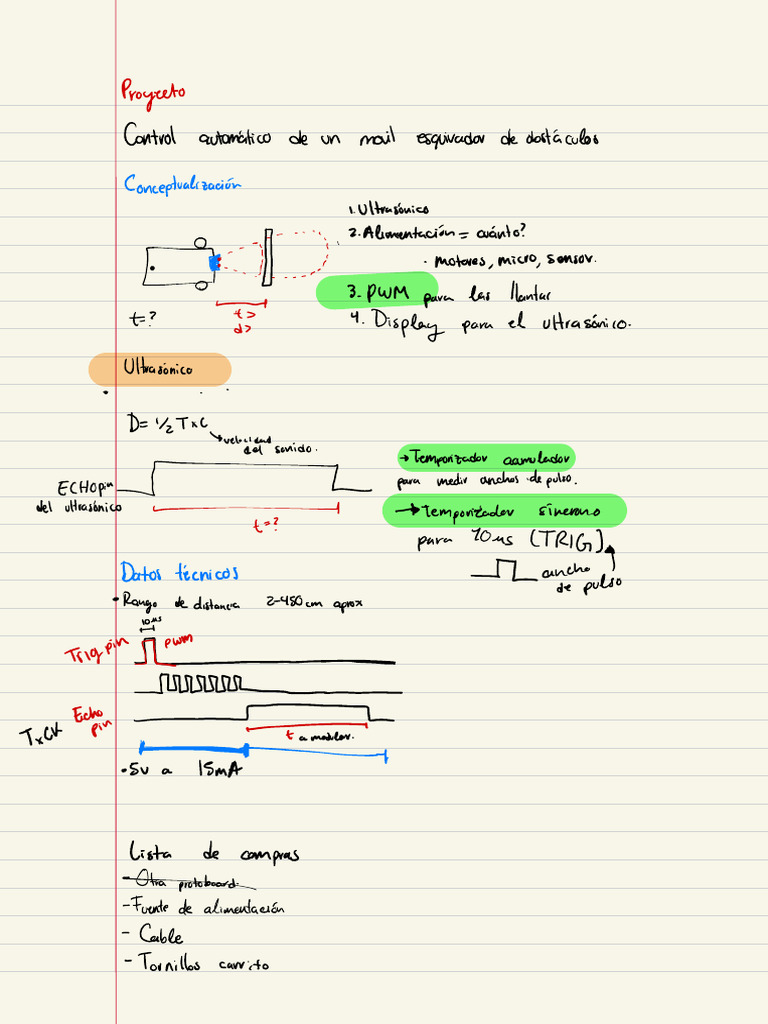 Proyecto
Control automático de un movil esquivador de obstáculos
Conceptualización
1. Ultrasónico
2. Alimentación = cuánto?
· motores, micro, sensor.
3. PWM para las llantas
4. Display para el ultrasónico.
t=?
t>
d>
Ultrasónico
D= 1/2 T x C
velocidad
del sonido.
ECHO pin
del ultrasónico
t=?
→ Temporizador acumulador
para medir anchos de pulso.
→ temporizador sincrono
para 10us (TRIG)
ancho
de pulso
Datos técnicos
• Rango de distancia 2-450 cm aprox
10us
Trig pin
PWM
TxCK
Echo
pin
t a medir.
• 5v a 15mA
Lista de compras
- Otra protoboard
- Fuente de alimentación
- Cable
- Tornillos carrito